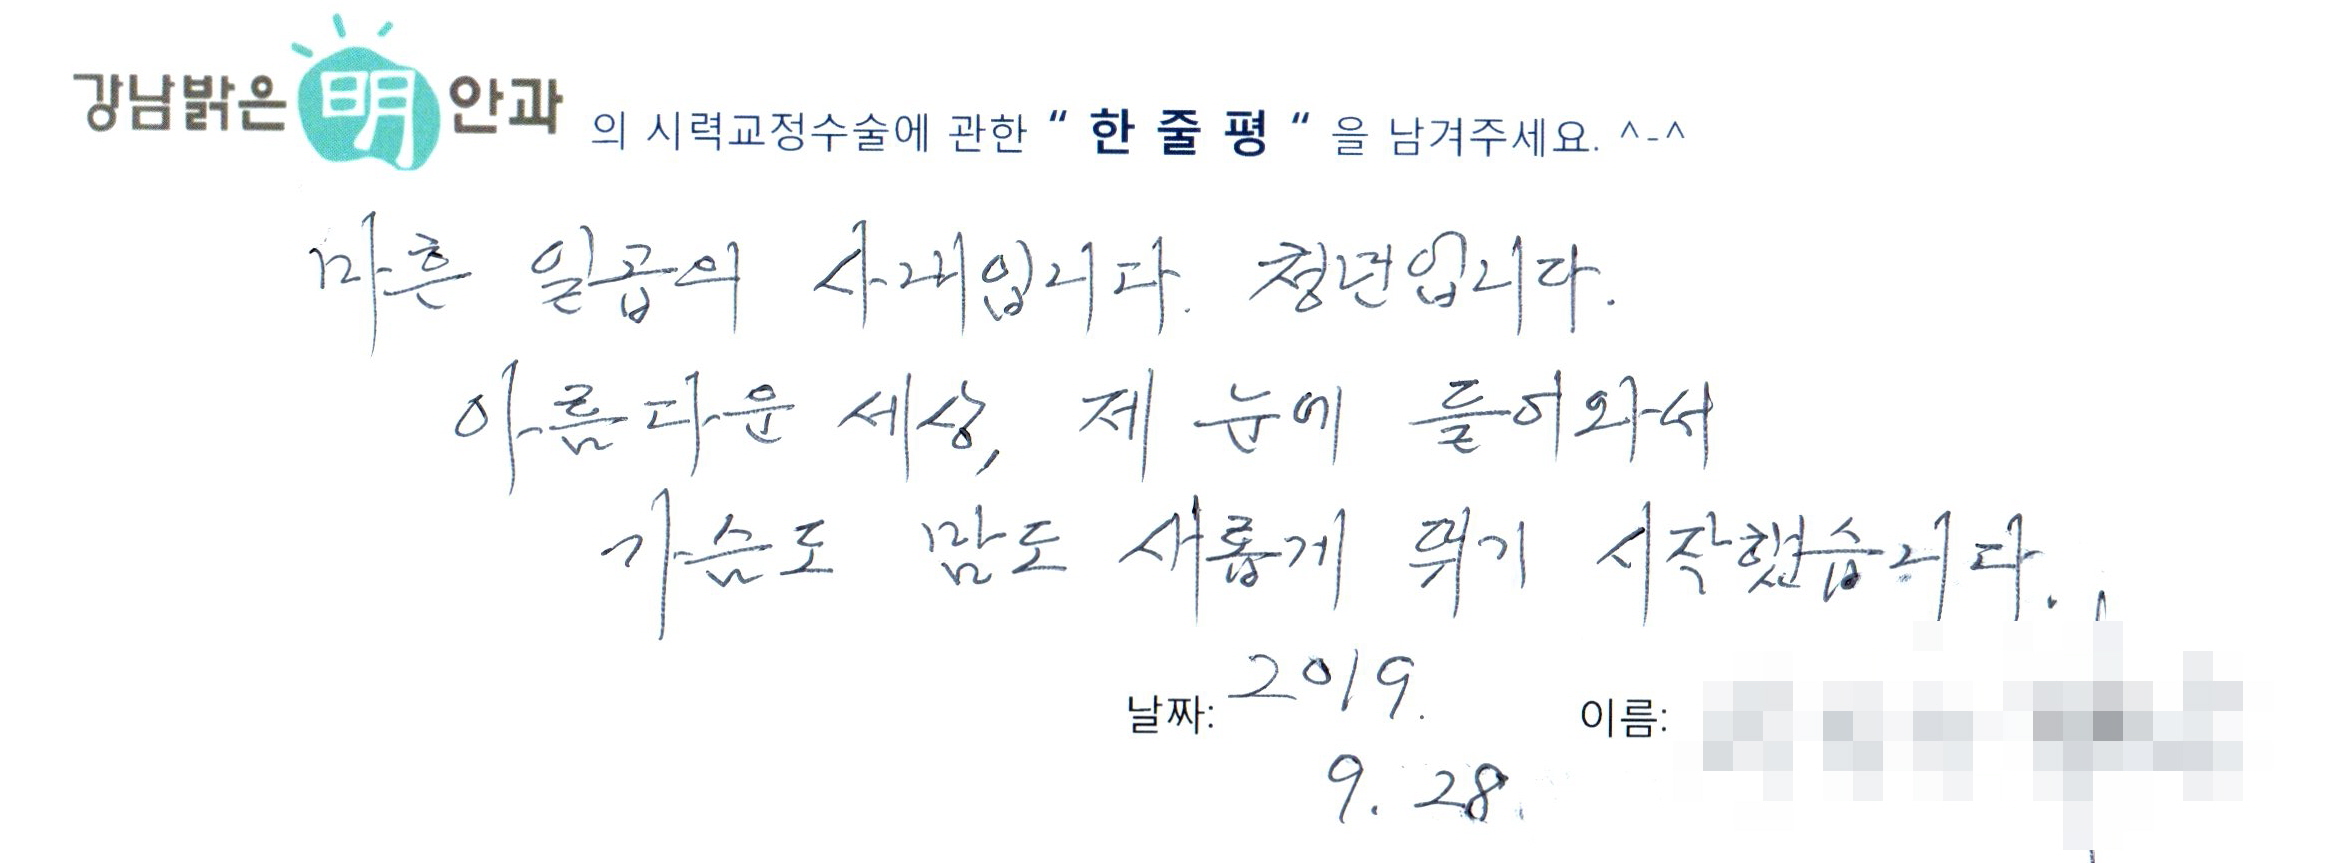 강남밝은 明 안과 의 시력교정수술에 관한 “ 한 줄 평 “ 을 남겨주세요. ^-^
마흔 일곱의 사내입니다. 청년입니다.
아름다운 세상, 제 눈에 들어와서
가슴도 맘도 새롭게 뛰기 시작했습니다.
날짜: 2019. 이름:
9. 28.